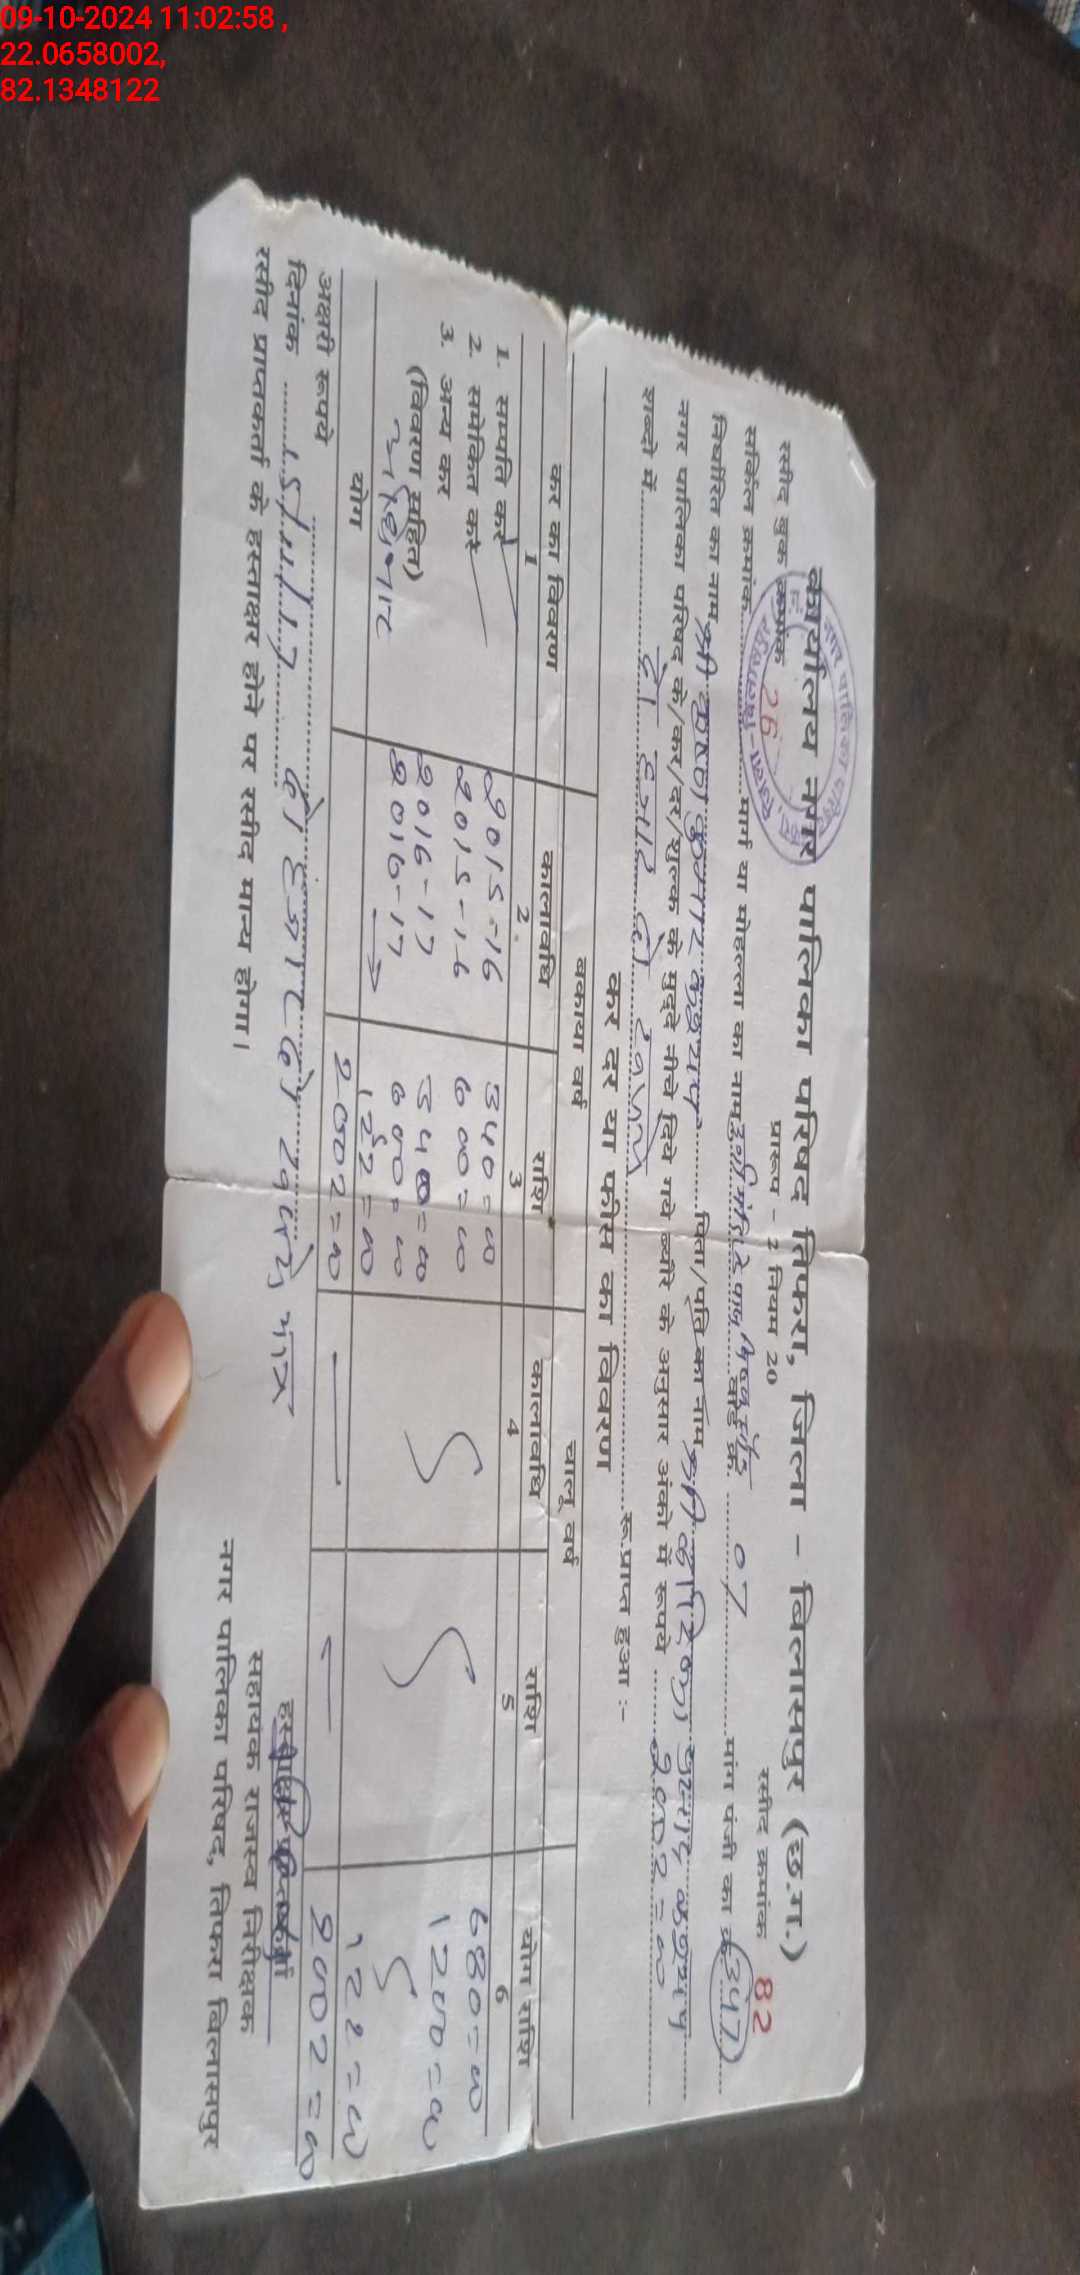 09-10-2024 11:02:58 ,
22.0658002,
82.1348122
कार्यालय नगर पालिका परिषद तिफरा, जिला - बिलासपुर (छ.ग.)
प्रारूप - 2 नियम 20
रसीद बुक क्रमांक 26 रसीद क्रमांक 82
सर्किल क्रमांक.......... मार्ग या मोहल्ला का नाम वार्ड क्र. 07 मांग पंजी का क्र. 347
निर्धारिति का नाम श्री कुमार कश्यप पिता/पति का नाम श्री कश्यप
नगर पालिका परिषद के/कर/दर/शुल्क के मुद्दे नीचे दिये गये ब्यौरे के अनुसार अंको में रूपये 2002=00
शब्दो में दो हजार दो रूपये रू.प्राप्त हुआ :-
कर दर या फीस का विवरण
कर का विवरण बकाया वर्ष चालू वर्ष
कालावधि राशि कालावधि राशि योग राशि
1 2. 3 4 5 6
1. सम्पति कर 2015-16 340=00 680=00
2. समेकित कर 2015-16 600=00 1200=00
3. अन्य कर 2016-17 340=00
(विवरण सहित) 2016-17 600=00
122=00 122=00
योग 2002=00 2002=00
अक्षरी रूपये दो हजार दो रूपये मात्र
दिनांक
हस्ताक्षर प्राप्तकर्ता
रसीद प्राप्तकर्ता के हस्ताक्षर होने पर रसीद मान्य होगा।
सहायक राजस्व निरीक्षक
नगर पालिका परिषद, तिफरा बिलासपुर